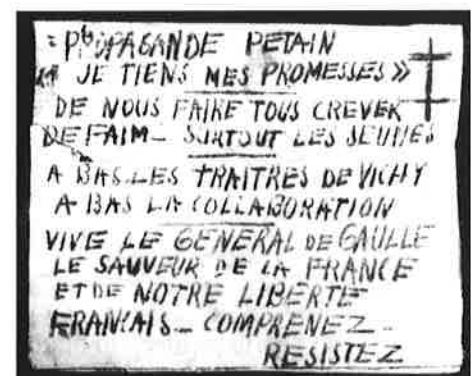 = PROPAGANDE PETAIN
" JE TIENS MES PROMESSES »
DE NOUS FAIRE TOUS CREVER
DE FAIM_ SURTOUT LES JEUNES
A BAS LES TRAITRES DE VICHY
A BAS LA COLLABORATION
VIVE LE GENERAL DE GAULLE
LE SAUVEUR DE LA FRANCE
ET DE NOTRE LIBERTE
FRANCAIS_ COMPRENEZ_
RESISTEZ